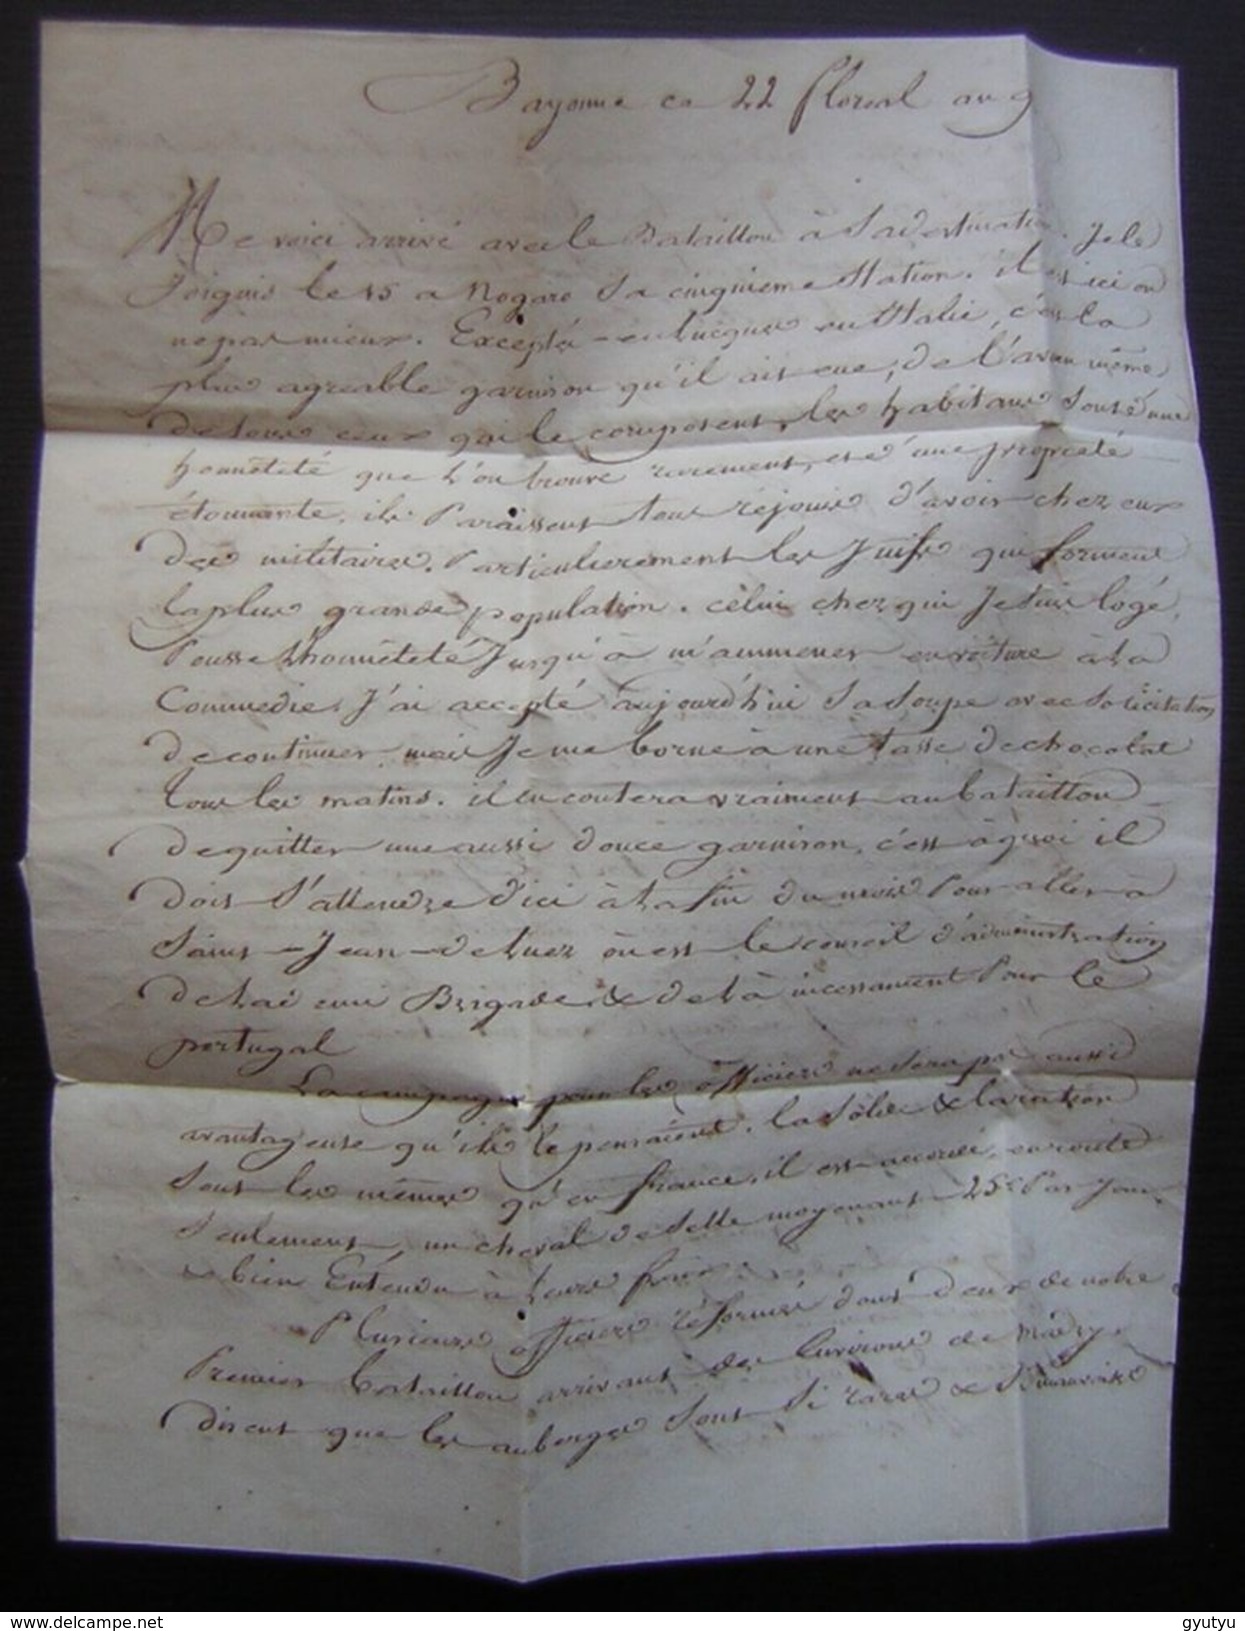 Bayonne ce 22 floreal an 9
Me voici arrivé avec le Bataillon à sa destination. Je le
Joignis le 15 a Nogaro sa cinquieme station. il est ici on
ne peu mieux. Excepté en Italie, c'est la
plus agreable garnison qu'il ait eue, de l'aveu même
de tous ceux qui le composent, les habitans sont d'une
honnêteté que l'on trouve rarement, et d'une propreté
étonnante, ils Paraissent tous réjouis d'avoir chez eux
des militaires. Particulierement les Juifs qui forment
la plus grande population. celui chez qui Je suis logé,
Pousse l'honnêteté Jusqu'à m'ammener en voiture à la
Commedie, J'ai accepté aujourd'hui sa soupe avec solicitation
de continuer, mais Je me borne à une tasse de chocolat
tous les matins. il en coutera vraiment au bataillon
de quitter une aussi douce garnison, c'est à quoi il
doit s'attendre d'ici à la fin du mois Pour aller à
Saint-Jean-de Luez où est le conseil d'administration
de la demi Brigade & de là incessament Pour le
portugal
La campagne pour les officiers ne sera pas aussi
avantageuse qu'ils le pensaient. la solde & la ration
sont les mêmes qu'en france, il est accordé, en route
seulement, un cheval de selle moyenant 25c Par Jour
& bien Entendu à leurs frais.
Plusieurs officiers réformés dont deux de notre
Premier bataillon arrivant des Environs de
disent que les auberges sont si rares &
www.delcampe.net
gyutyu